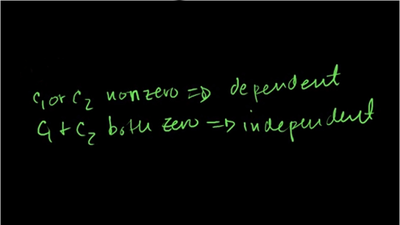 c₁ or c₂ nonzero ⇒ dependent
c₁ + c₂ both zero ⇒ independent